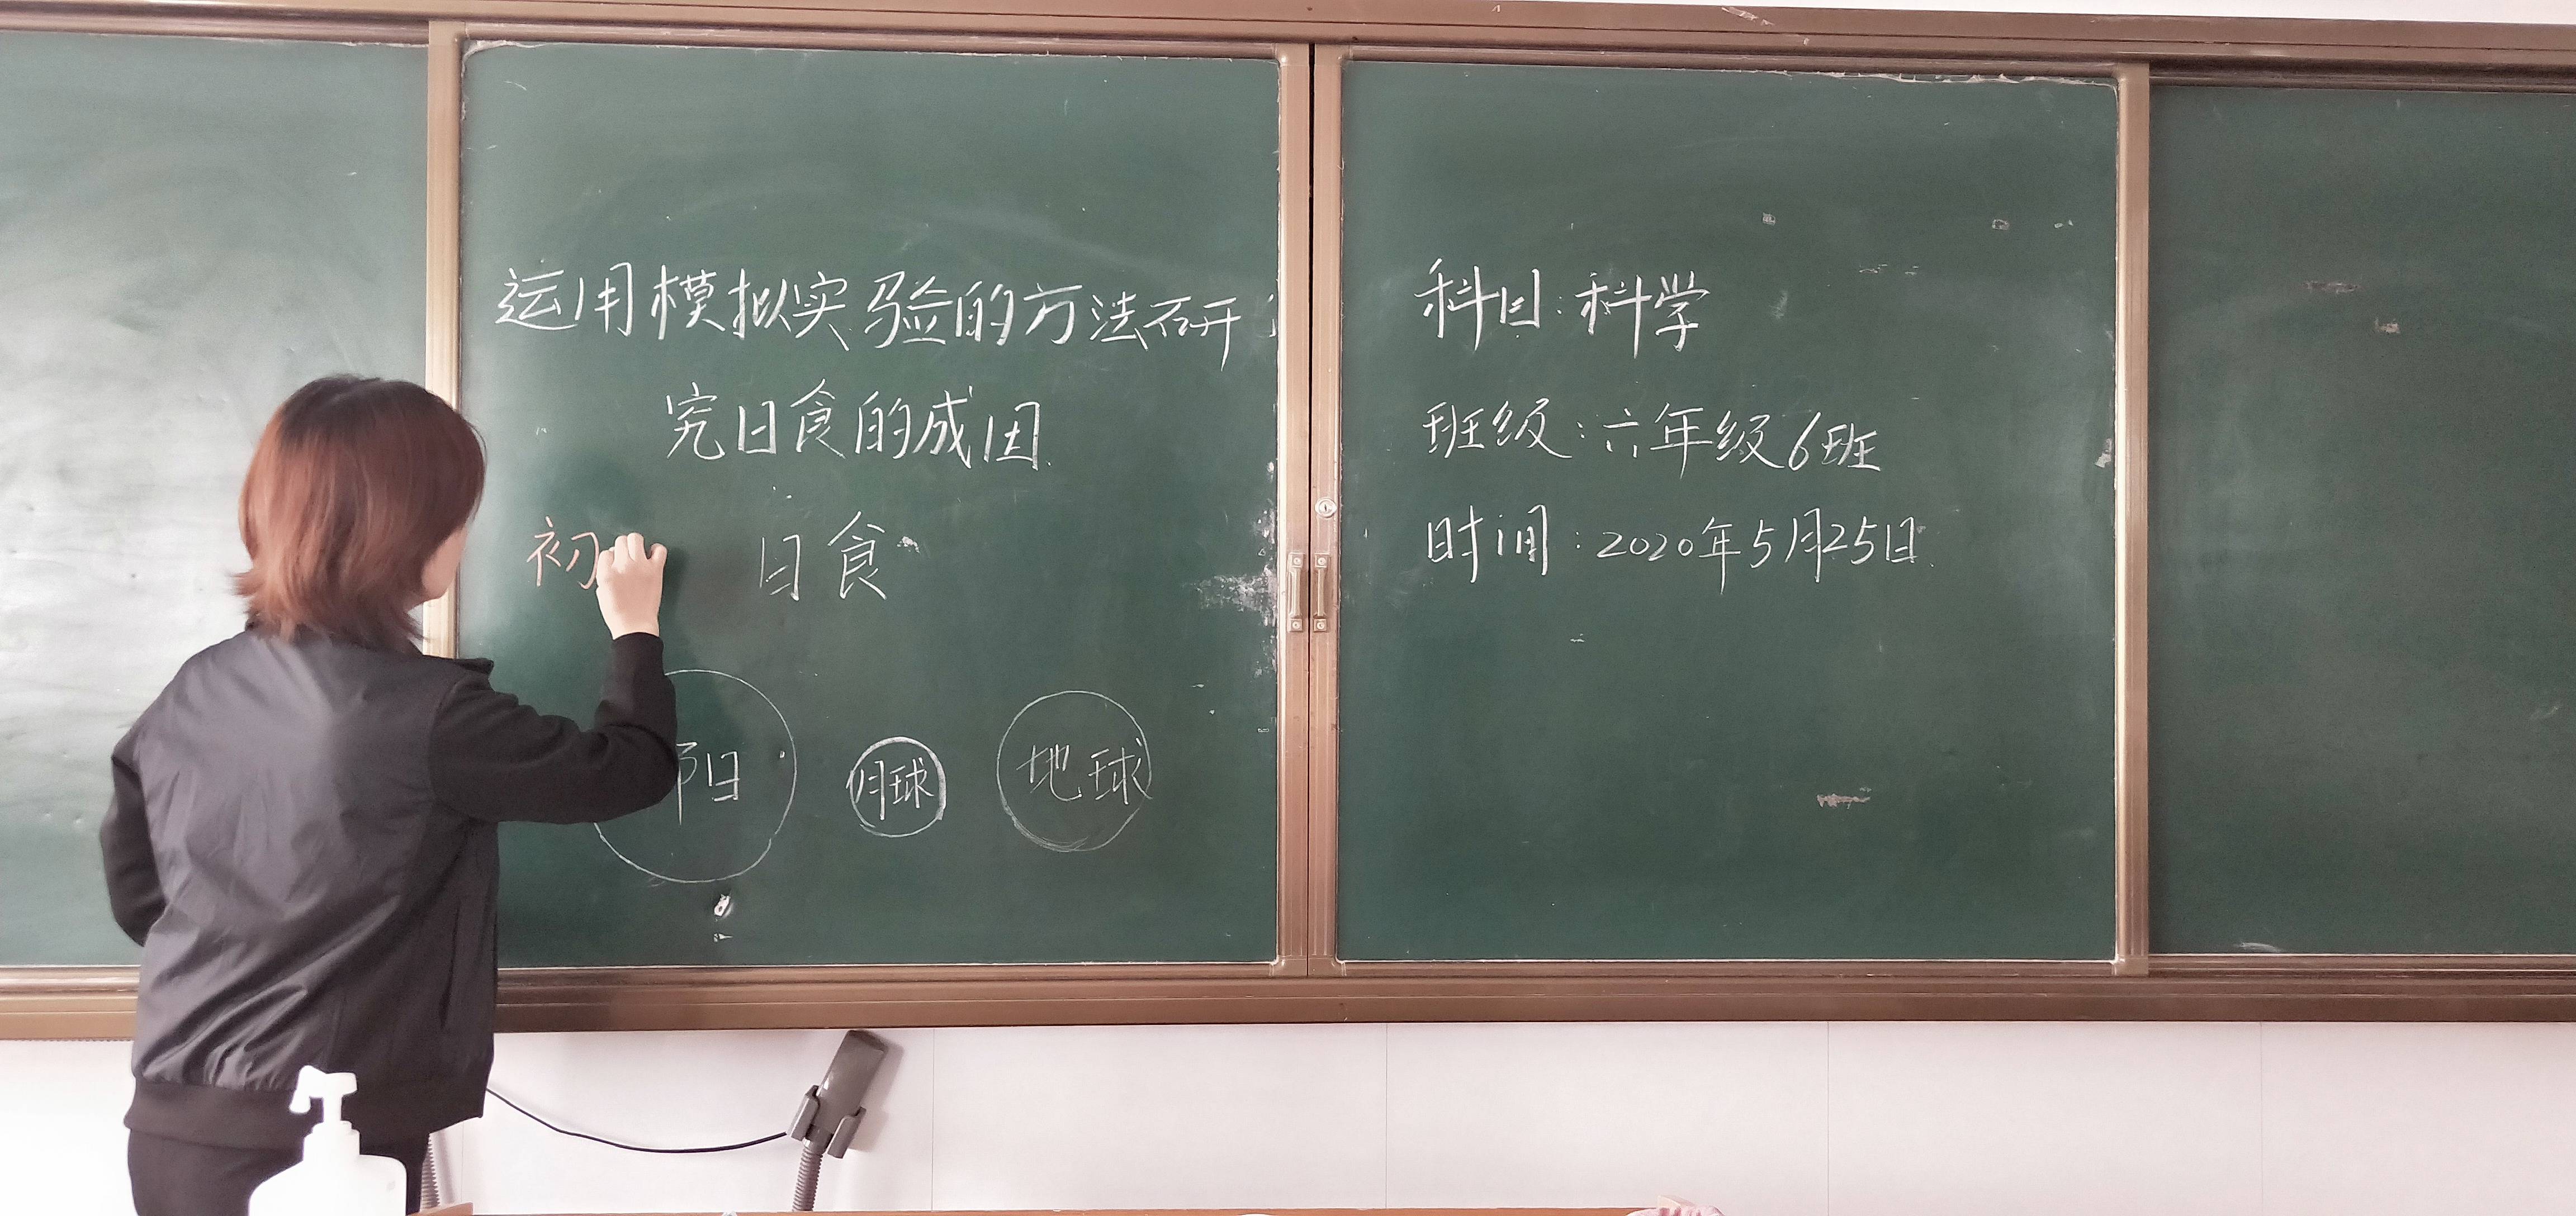 运用模拟实验的方法研
究日食的成因
初
日食
阳
月球
地球
科目:科学
班级:六年级6班
时间:2020年5月25日